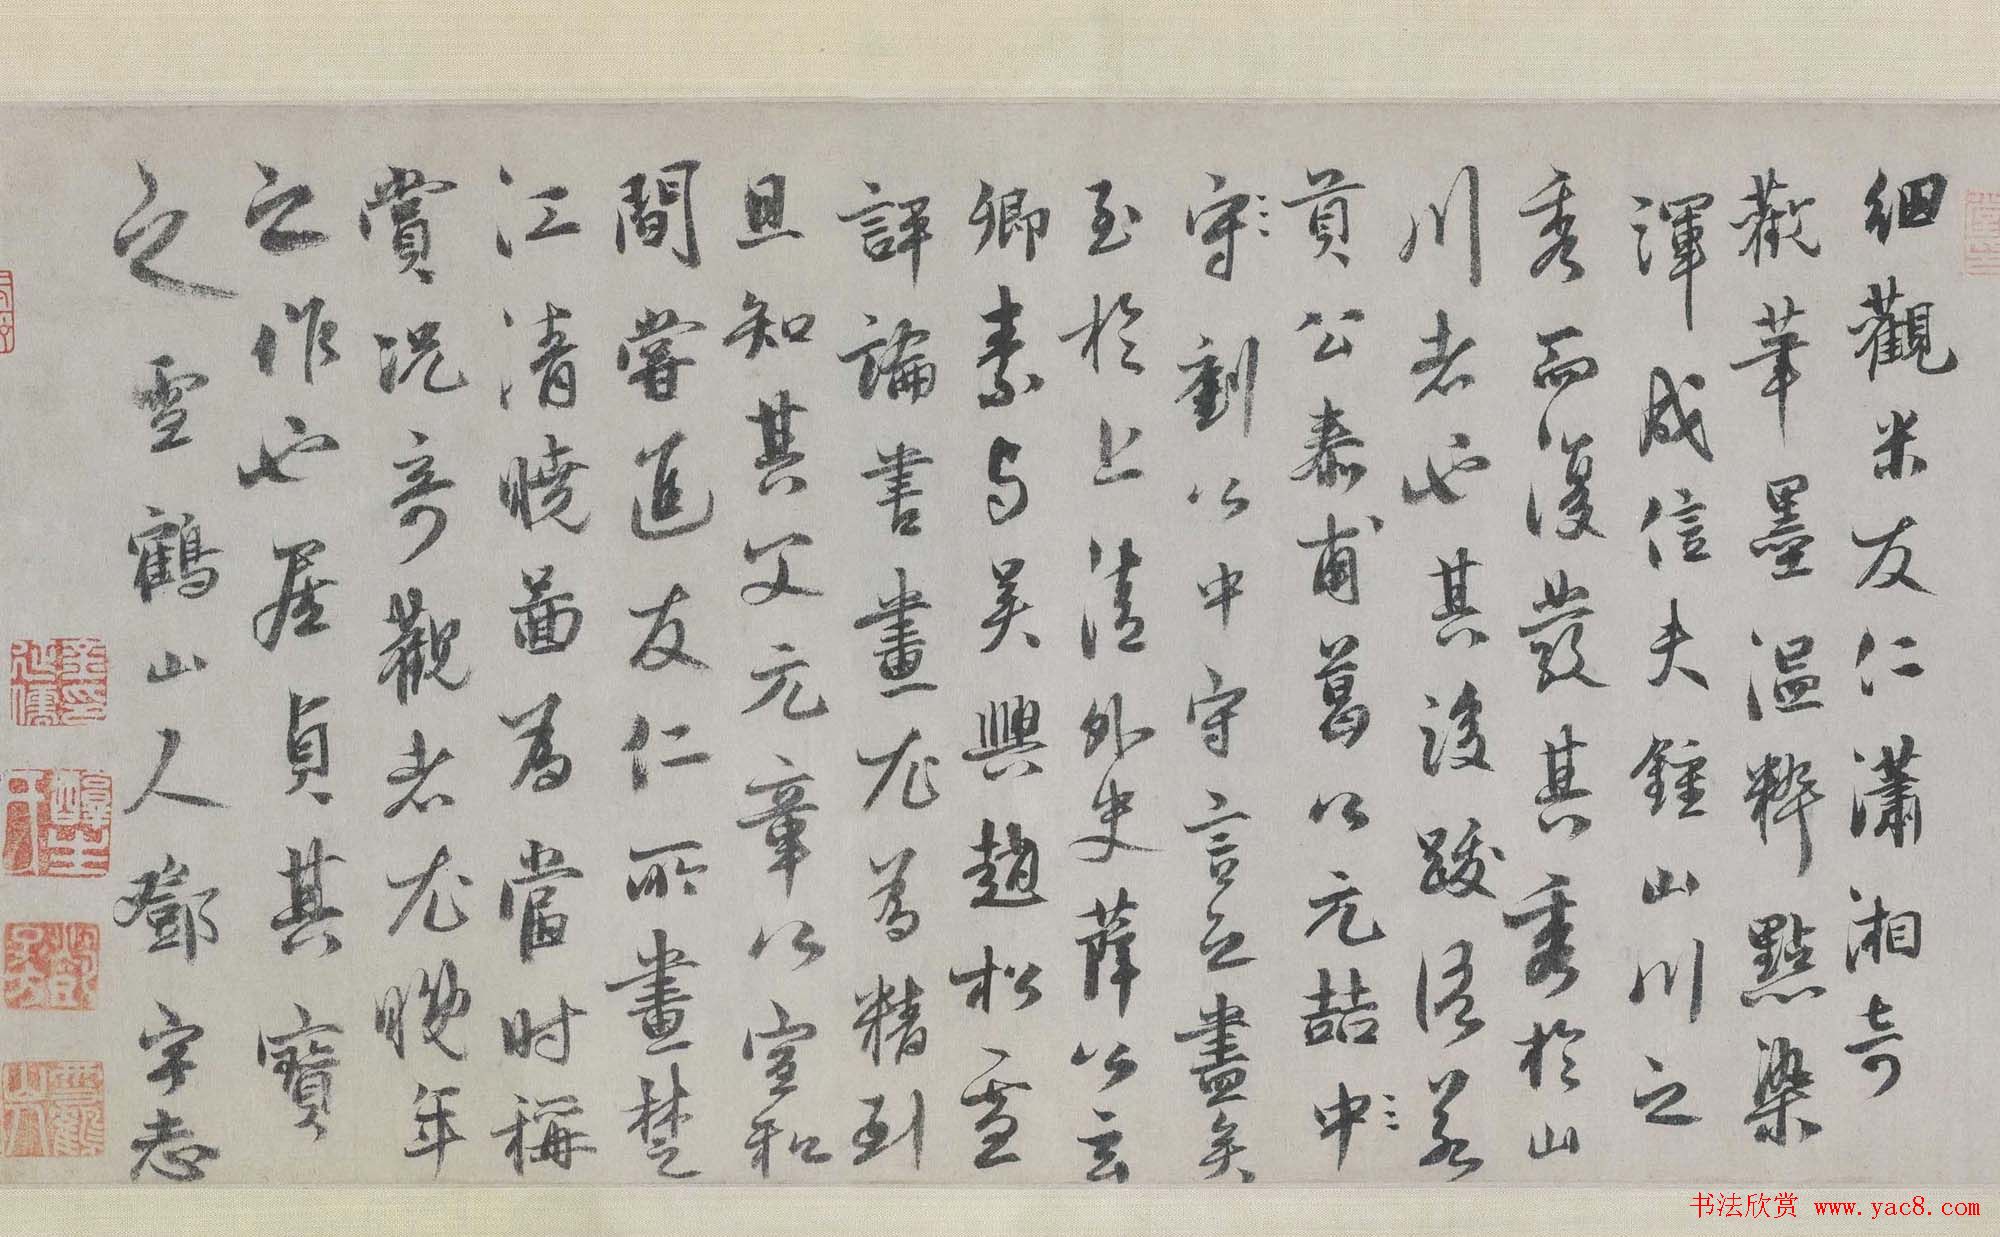 細觀米友仁瀟湘奇
觀筆墨温粹點染
渾成信夫鍾山川之
秀而復發其秀於山
川者也其後跋語若
貢公泰甫葛公元喆中
守劉公中守言之盡矣
至於上清外史薛公玄
卿素与吴興趙松雪
評論書畫尤爲精到
且知其父元章公宣和
間嘗進友仁所畫楚
江清曉啚爲當时稱
賞况奇觀者尤晚年
之作也居貞其寶
之雲鶴山人鄧宇志
书法欣赏 www.yac8.com